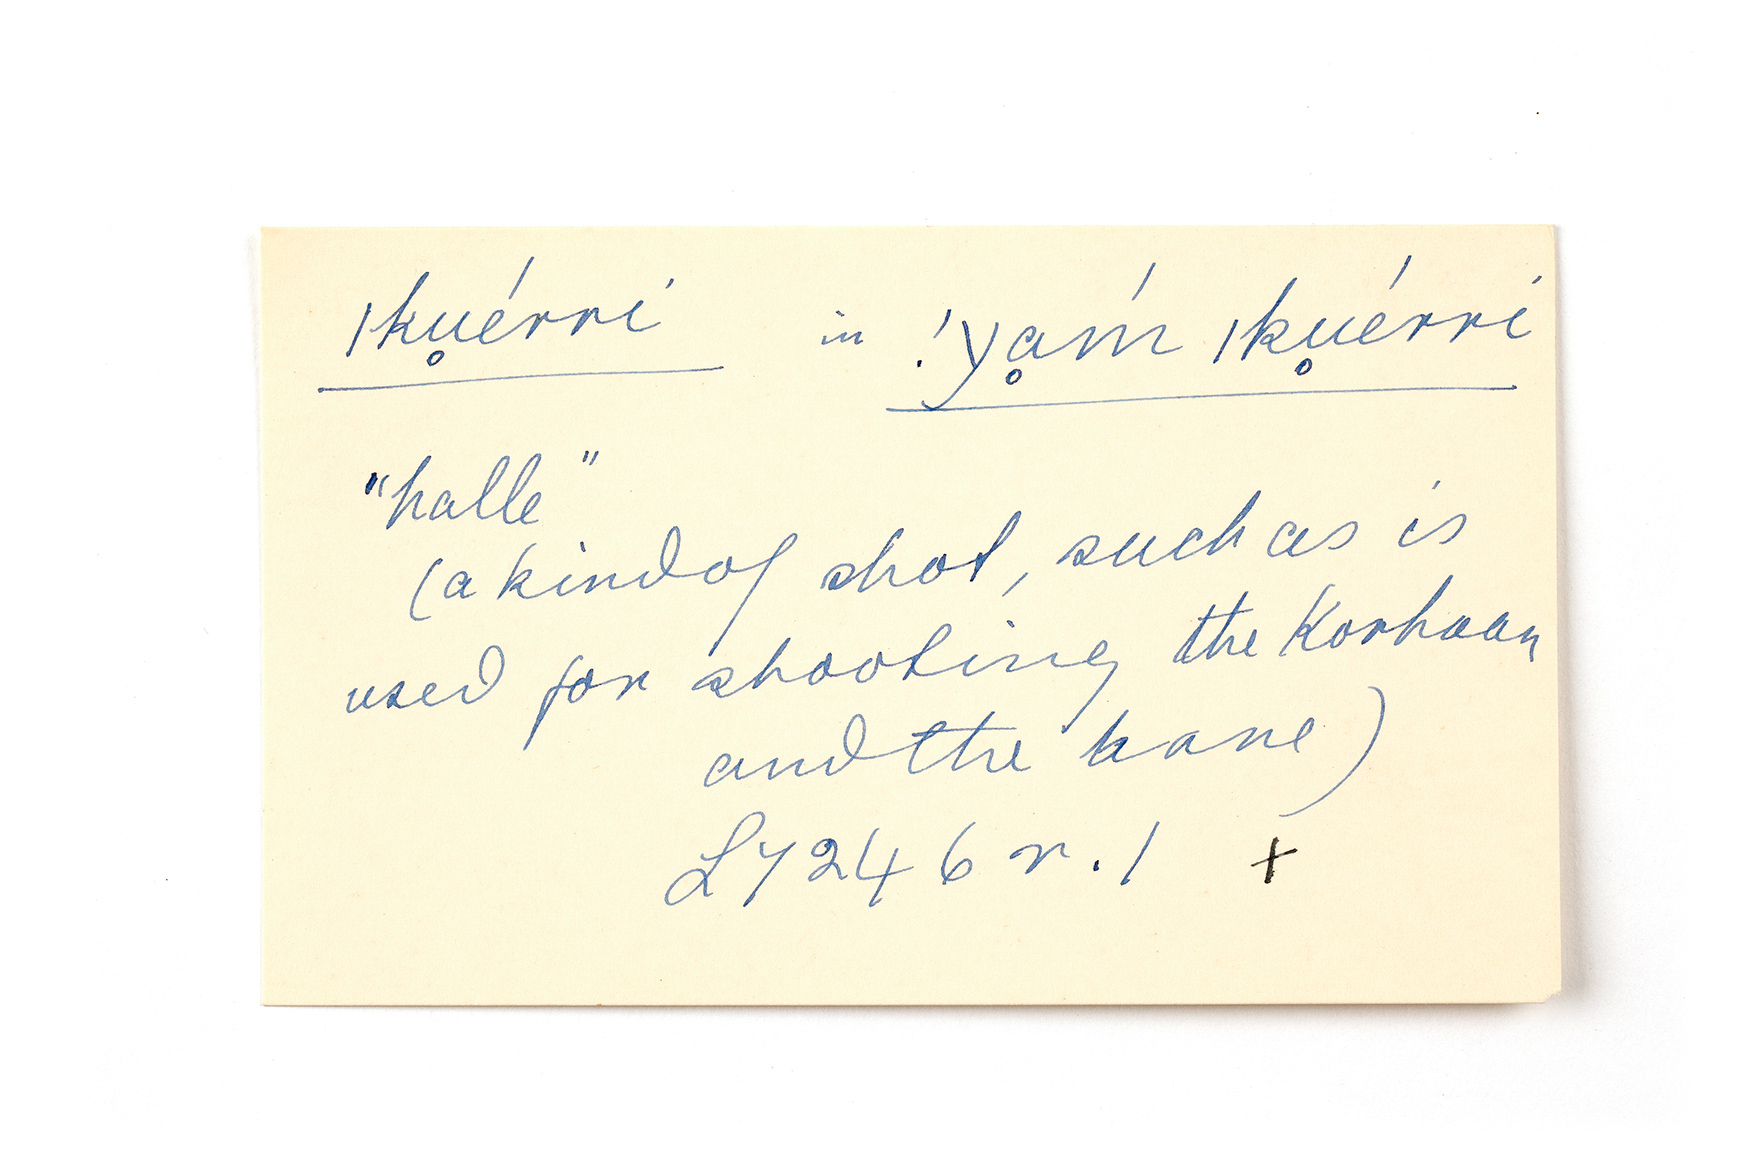 |ku̥érri in !yḁḿ |ku̥érri
"halle"
(a kind of shot, such as is
used for shooting the Korhaan
and the hare)
L Y 246 r. 1 +